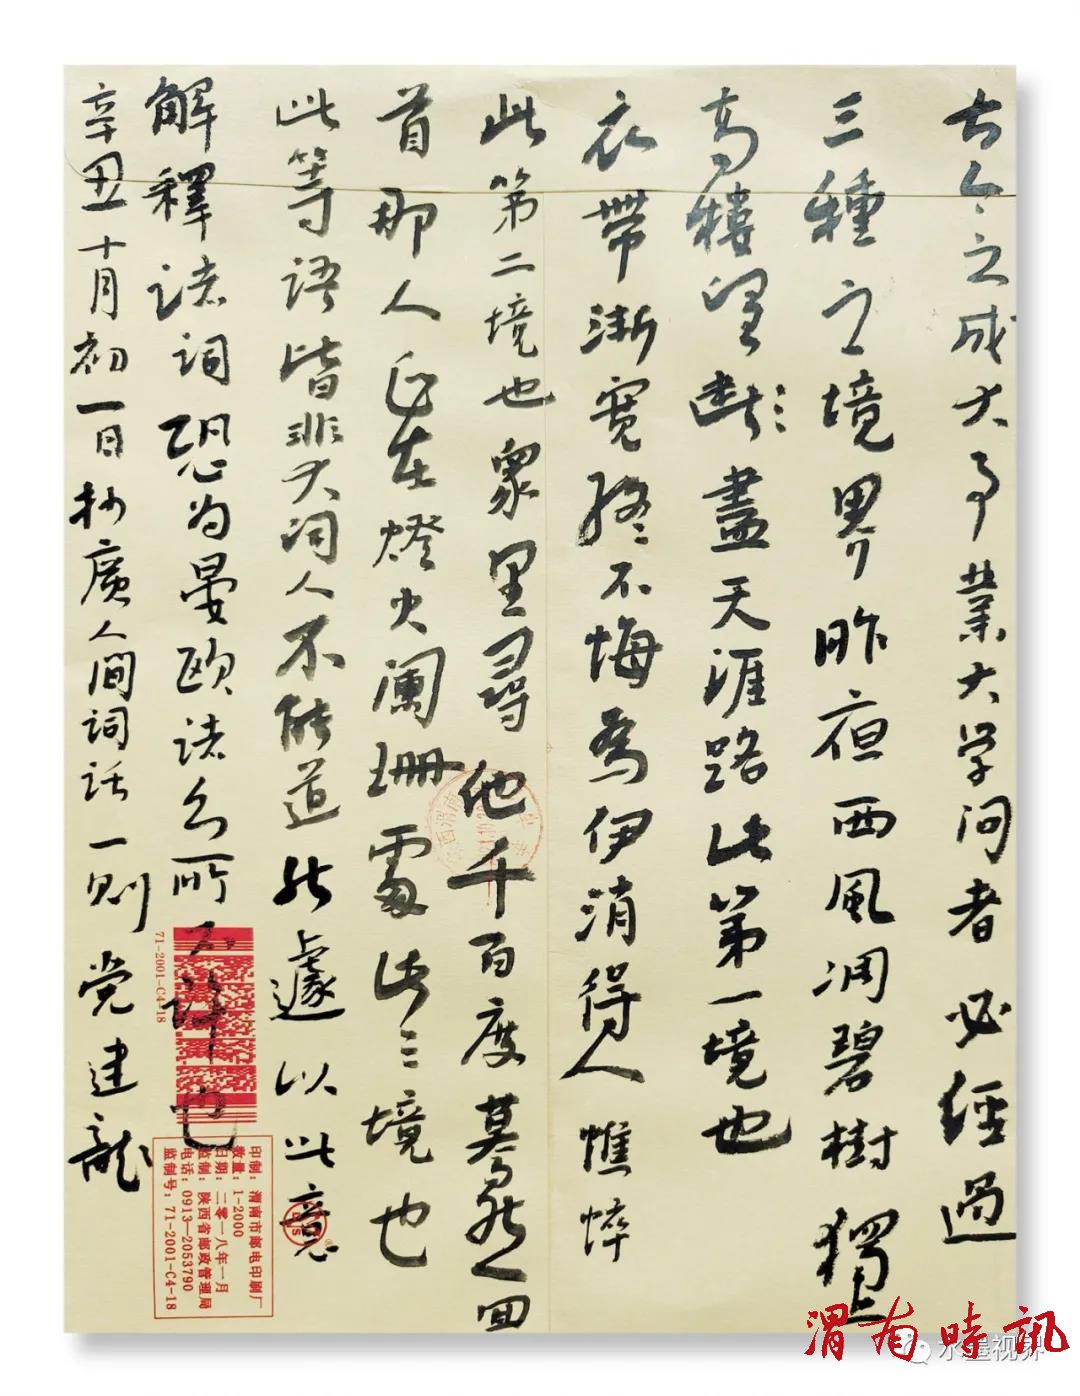 古今之成大事業大学问者必經過
三種之境界昨夜西風凋碧樹獨上
高樓望断盡天涯路此第一境也
衣帶漸宽終不悔為伊消得人憔悴
此第二境也衆里尋他千百度驀然回
首那人正在燈火阑珊處此三境也
此等语皆非大词人不能道然遽以此意
解釋诸词恐为晏欧诸公所不許也
辛丑十月初一日抄廣人间词话一则 党建龍
71-2001-C4-18
印制：渭南市邮电印刷厂
数量：1-2000
日期：二零一八年一月
监制：陕西省邮政管理局
电话：0913-2053790
监制号：71-2001-C4-18
渭南時訊
水墨视界